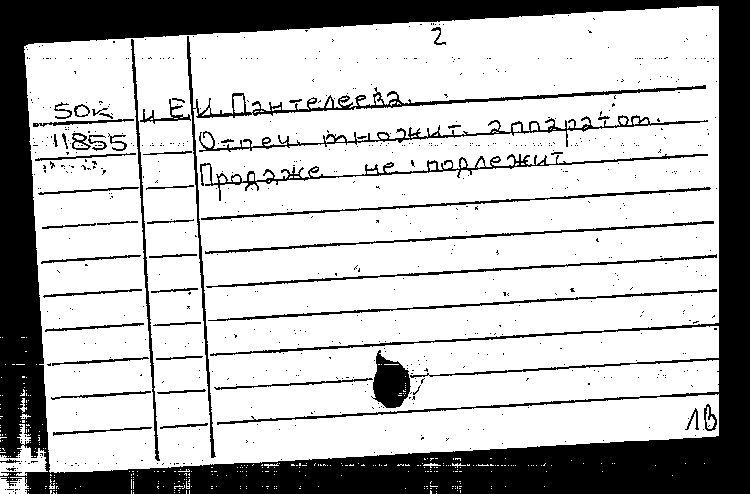 2
50к и Е.И. Пантелеева.
11855 Отпеч. множит. аппаратом.
Продаже не подлежит.
1В